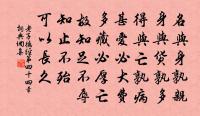 名與身孰親
身與貨孰多
得與亡孰病
甚愛必大費
多藏必厚亡
故知足不辱
知止不殆
可以長久
老子道德經第四十四章
詞典網集